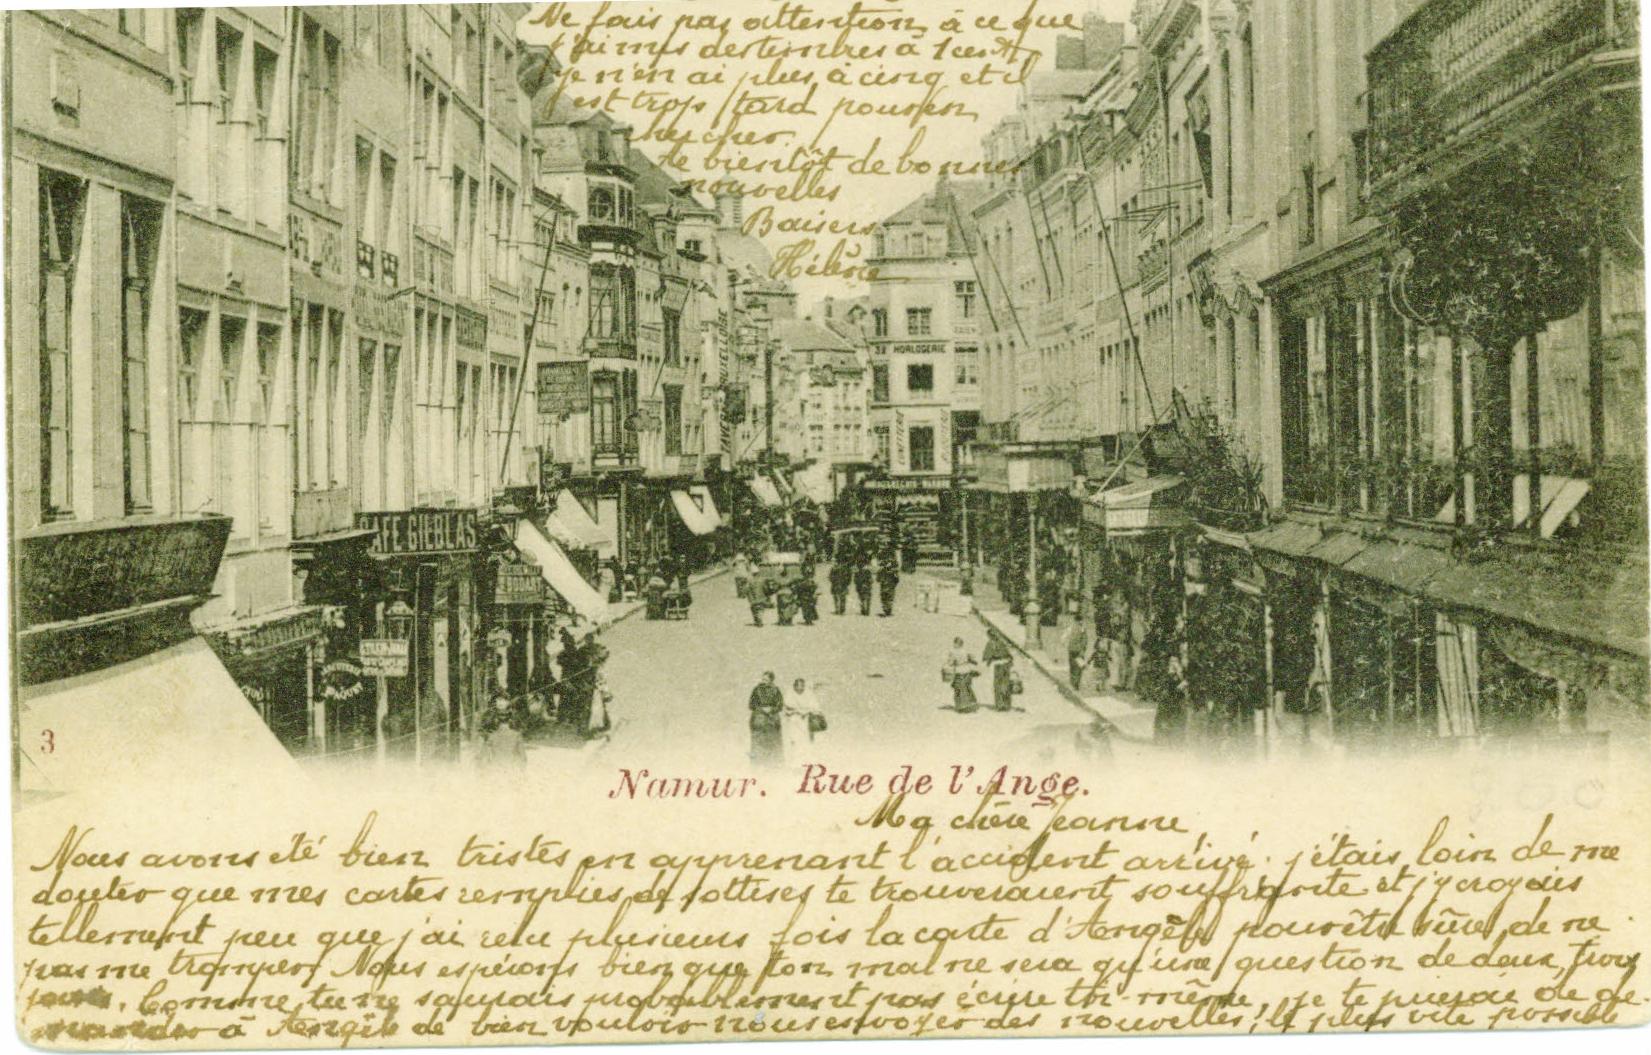 Ne fais pas attention à ce que
j'ai mis des timbres à 1 cent
je n'en ai plus à cinq et il
est trop tard pour en
chercher.
de bonnes
nouvelles
Baisers
Hélène
32 HORLOGERIE
CAFE GILBLAS
3
Namur. Rue de l'Ange.
Ma chère Jeanne
Nous avons été bien tristes en apprenant l'accident arrivé. j'étais loin de me
douter que mes cartes remplies de sottises te trouveraient souffrante et j'y croyais
tellement peu que j'ai relu plusieurs fois la carte d'Angèle pour être sûre de ne
pas me tromper. Nous espérons bien que ton mal ne sera qu'une question de deux, trois
jours. Comme tu ne saurais probablement pas écrire toi-même, je te prierai de de
mander à Angèle de bien vouloir nous envoyer des nouvelles le plus vite possible